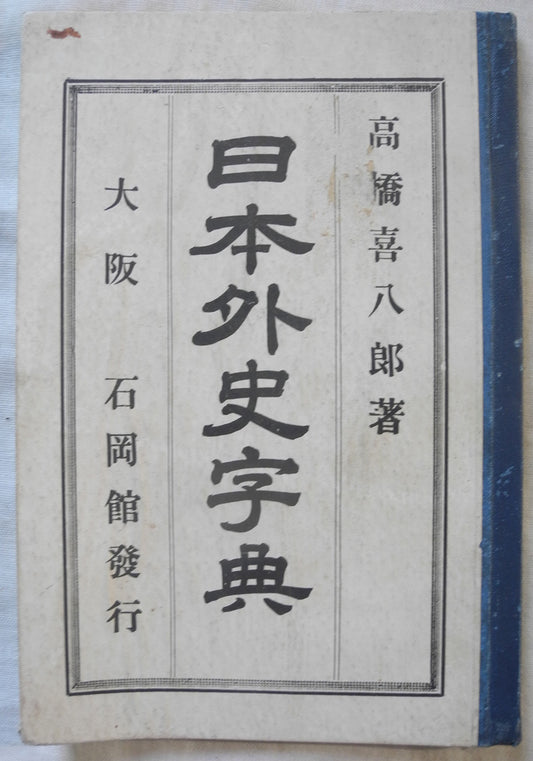 高橋喜八郎著
日本外史字典
大阪 石岡館發行